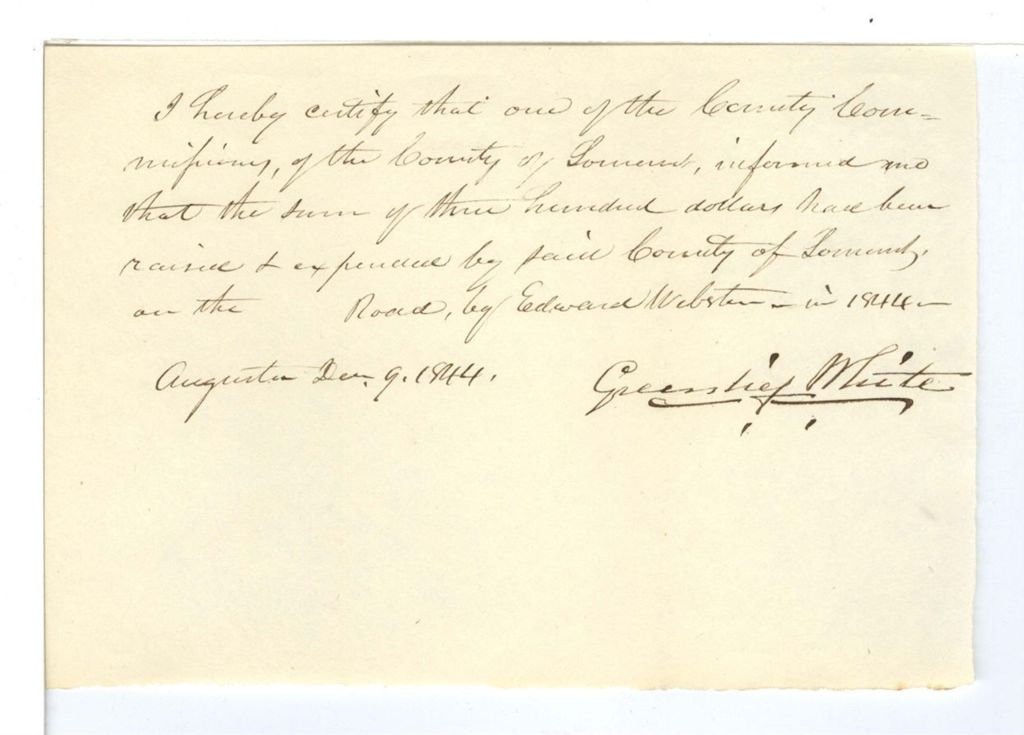 I hereby certify that one of the County Com=
missioners, of the County of Somerset, informed me
that the sum of three hundred dollars had been
raised & expended by said County of Somerset,
on the Road, by Edward Webster - in 1844 -
Augusta Dec. 9. 1844. Greenlief White